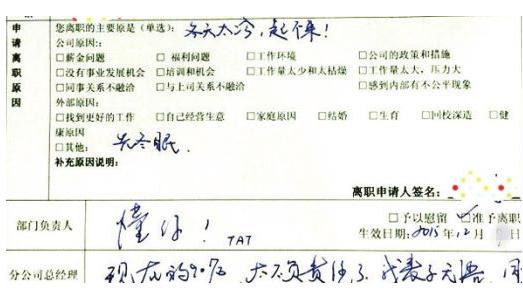 申请离职原因
您离职的主要原是(单选): 冬天太冷,起不来!
公司原因:
□薪金问题 □ 福利问题 □工作环境 □公司的政策和措施
□没有事业发展机会 □培训和机会 □工作量太少和太枯燥 □工作量太大,压力大
□同事关系不融洽 □与上司关系不融洽 □感到内部有不公平现象
外部原因:
□找到更好的工作 □自己经营生意 □家庭原因 □结婚 □生育 □回校深造 □健
康原因
□其他: 先冬眠.
补充原因说明:
离职申请人签名:
部门负责人 懂你! TAT
□予以慰留 □准予离职
生效日期: 2015年12月 日
分公司总经理 现在的90后,太不负责任了,我表示无语,同